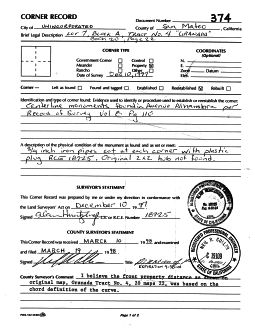 CORNER RECORD
Document Number 374
City of UNINCORPORATED County of San Mateo, California
Brief Legal Description LOT 7, BLOCK A, TRACT No. 4 "GRANADA"
CORNER TYPE
COORDINATES
(Optional)
Government Corner Control
Meander Property
Rancho Other
Date of Survey DEC 10, 1997
N.
E.
Zone Datum
Elev.
Corner - Left as found Found and tagged Established Reestablished Rebuilt
Identification and type of corner found: Evidence used to identify or procedure used to establish or reestablish the corner:
Centerline monuments found in Avenue Alhambra per
Record of Survey Vol 8 Pg 116
A description of the physical condition of the monument as found and as set or reset:
3/4 inch iron pipes set at each corner with plastic
plug RCE 18925. Original 2x2 hub not found.
SURVEYOR'S STATEMENT
This Corner Record was prepared by me or under my direction in conformance with
the Land Surveyors' Act on December 10, 1997
Signed L.S. or R.C.E. Number 18925
COUNTY SURVEYOR'S STATEMENT
This Corner Record was received MARCH 10 1998 and examined
and filed MARCH 19 1998
Signed Title
County Surveyor's Comment I believe the front property distance as
original map, Granada Tract No. 4, 20 maps 22, was based on the
chord definition of the curve.
Page 1 of 2